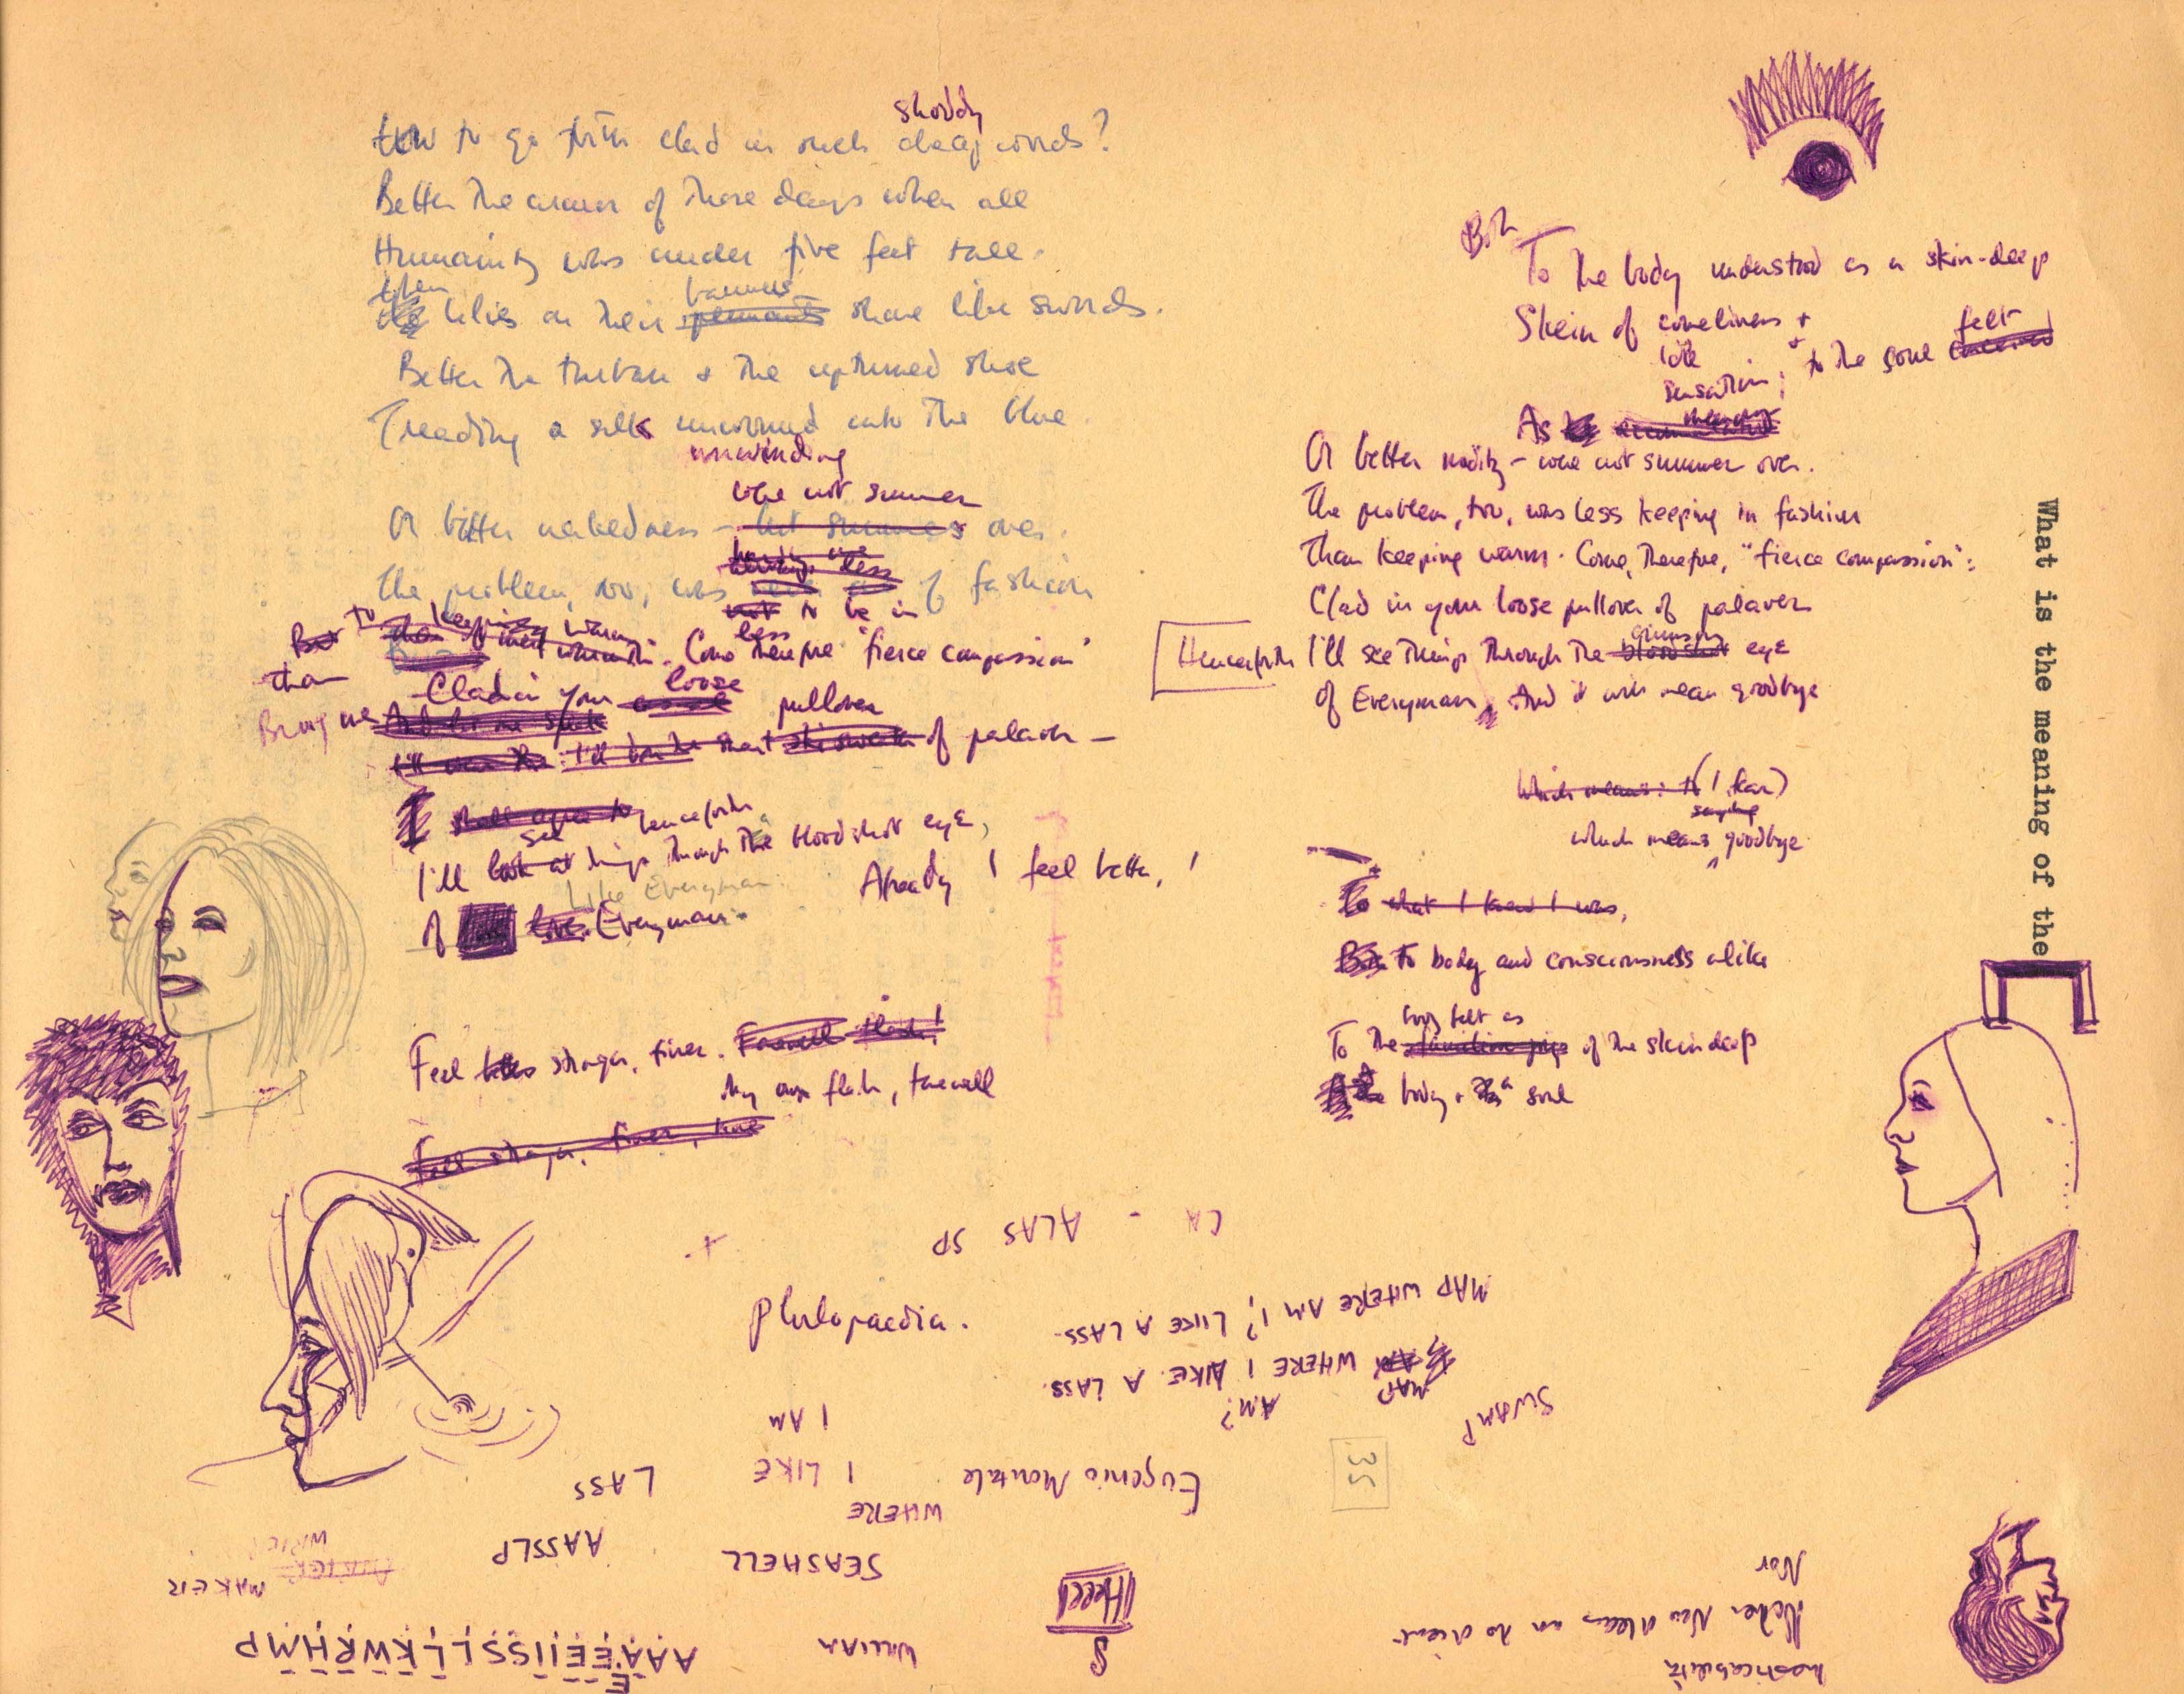 shoddy
How to go forth clad in such cheap words?
Better the armor of those days when all
Humanity was under five feet tall.
When
lilies on their banners shone like swords.
Better the turban & the upturned shoe
Treading a silk unwound into the blue
unwinding
were not summer
Or better nakedness – let summer's over.
The problem, too, was of fashion
to be in
less
But to keeping warm
than
warmth. Come therefore "fierce compassion"
loose
Clad in your pullover
Bring me
of palaver –
I shall agree to henceforth
see
I'll look at things through the bloodshot eye,
Like Everyman.
of Everyman.
Already I feel better, I
Feel stronger, finer. Farewell flesh!
My own flesh, farewell
Feel stronger, finer,
Both
To the body understood as a skin-deep
Skein of comeliness +
sensation; to the soul felt
As
Or better nudity – were not summer over.
The problem, too, was less keeping in fashion
Than keeping warm. Come, therefore, "fierce compassion":
Clad in your loose pullover of palaver
Henceforth I'll see things through the bloodshot eye
of Everyman. And it will mean goodbye
Which means: to (I fear)
saying
which means goodbye
To what I knew I was,
To body and consciousness alike
body felt as
To the of the skin deep
body + a soul
What is the meaning of the
LA - ALAS SP
Philopaedia.
MAP WHERE AM I? LIKE A LASS.
WHERE I LIKE A LASS.
MAP
AM?
SWAMP
I AM
I LIKE
LASS
Eugenio Montale
35
WHERE
AASSLP
SEASHELL
MAKER
Nor
William
AAAEEIISSLLKWRHMP
E